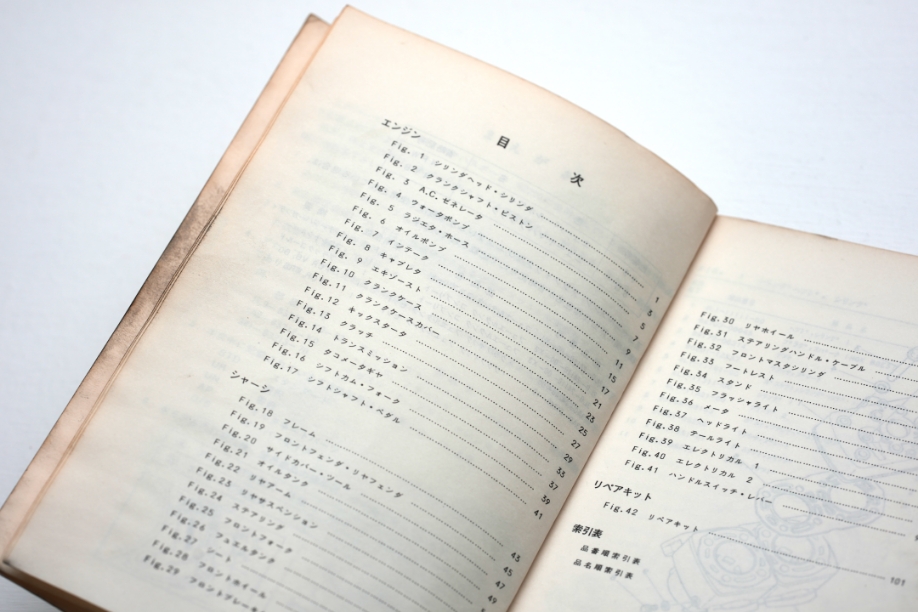 目次
エンジン
Fig. 1 シリンダヘッド・シリンダ 1
Fig. 2 クランクシャフト・ピストン 3
Fig. 3 A.C.ゼネレータ 5
Fig. 4 ウォータポンプ 7
Fig. 5 ラジエタ・ホース 9
Fig. 6 オイルポンプ 11
Fig. 7 インテーク 15
Fig. 8 キャブレタ 17
Fig. 9 エキゾースト 21
Fig.10 クランクケース 23
Fig.11 クランクケースカバー 25
Fig.12 キックスタータ 27
Fig.13 クラッチ 29
Fig.14 トランスミッション 33
Fig.15 タコメータギヤ 37
Fig.16 シフトカム・フォーク 39
Fig.17 シフトシャフト・ペダル 41
シャージ
Fig.18 フレーム 43
Fig.19 フロントフェンダ・リヤフェンダ 45
Fig.20 サイドカバー・ツール 47
Fig.21 オイルタンク 49
Fig.22 リヤアーム
Fig.23 リヤサスペンション
Fig.24 ステアリング
Fig.25 フロントフォーク
Fig.26 フュエルタンク
Fig.27 シート
Fig.28 フロントホイール
Fig.29 フロントブレーキ
Fig.30 リヤホイール
Fig.31 ステアリングハンドル・ケーブル
Fig.32 フロントマスタシリンダ
Fig.33 フートレスト
Fig.34 スタンド
Fig.35 フラッシャライト
Fig.36 メータ
Fig.37 ヘッドライト
Fig.38 テールライト
Fig.39 エレクトリカル 1
Fig.40 エレクトリカル 2
Fig.41 ハンドルスイッチ・レバー
リペアキット
Fig.42 リペアキット 101
索引表
品番順索引表
品名順索引表